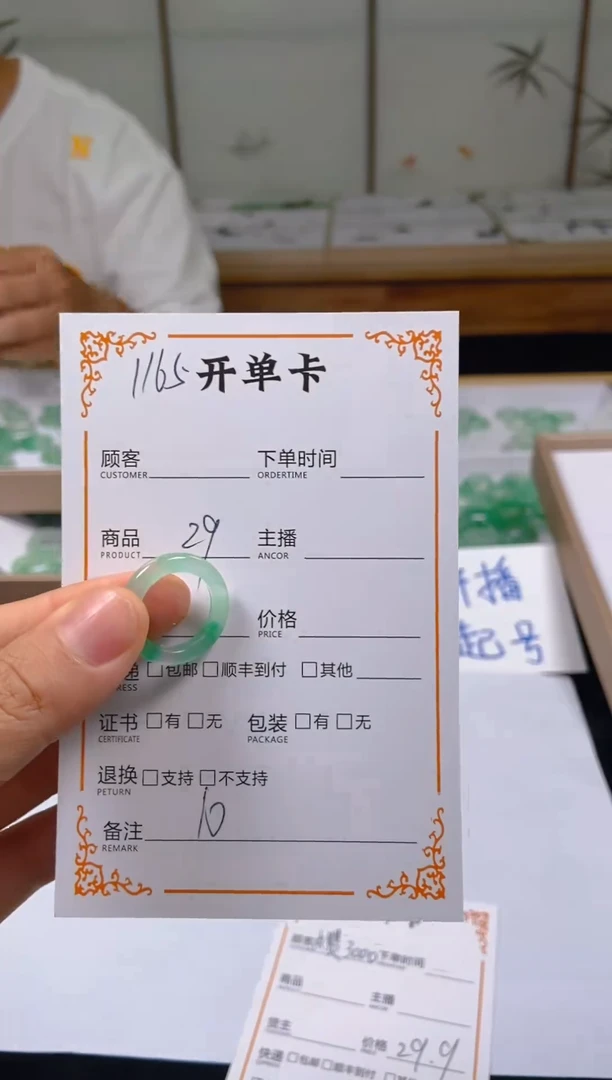 1165 开单卡
顾客 下单时间
CUSTOMER ORDERTIME
商品 29 主播
PRODUCT ANCOR
价格
PRICE
递 □包邮 □顺丰到付 □其他
MESS
证书 □有 □无 包装 □有 □无
CERTIFICATE PACKAGE
退换 □支持 □不支持
PETURN
备注 10
REMARK
播
起号
3000 下单时间
商品 主播
货主 价格 29.9
快递 □包邮 □顺丰到付